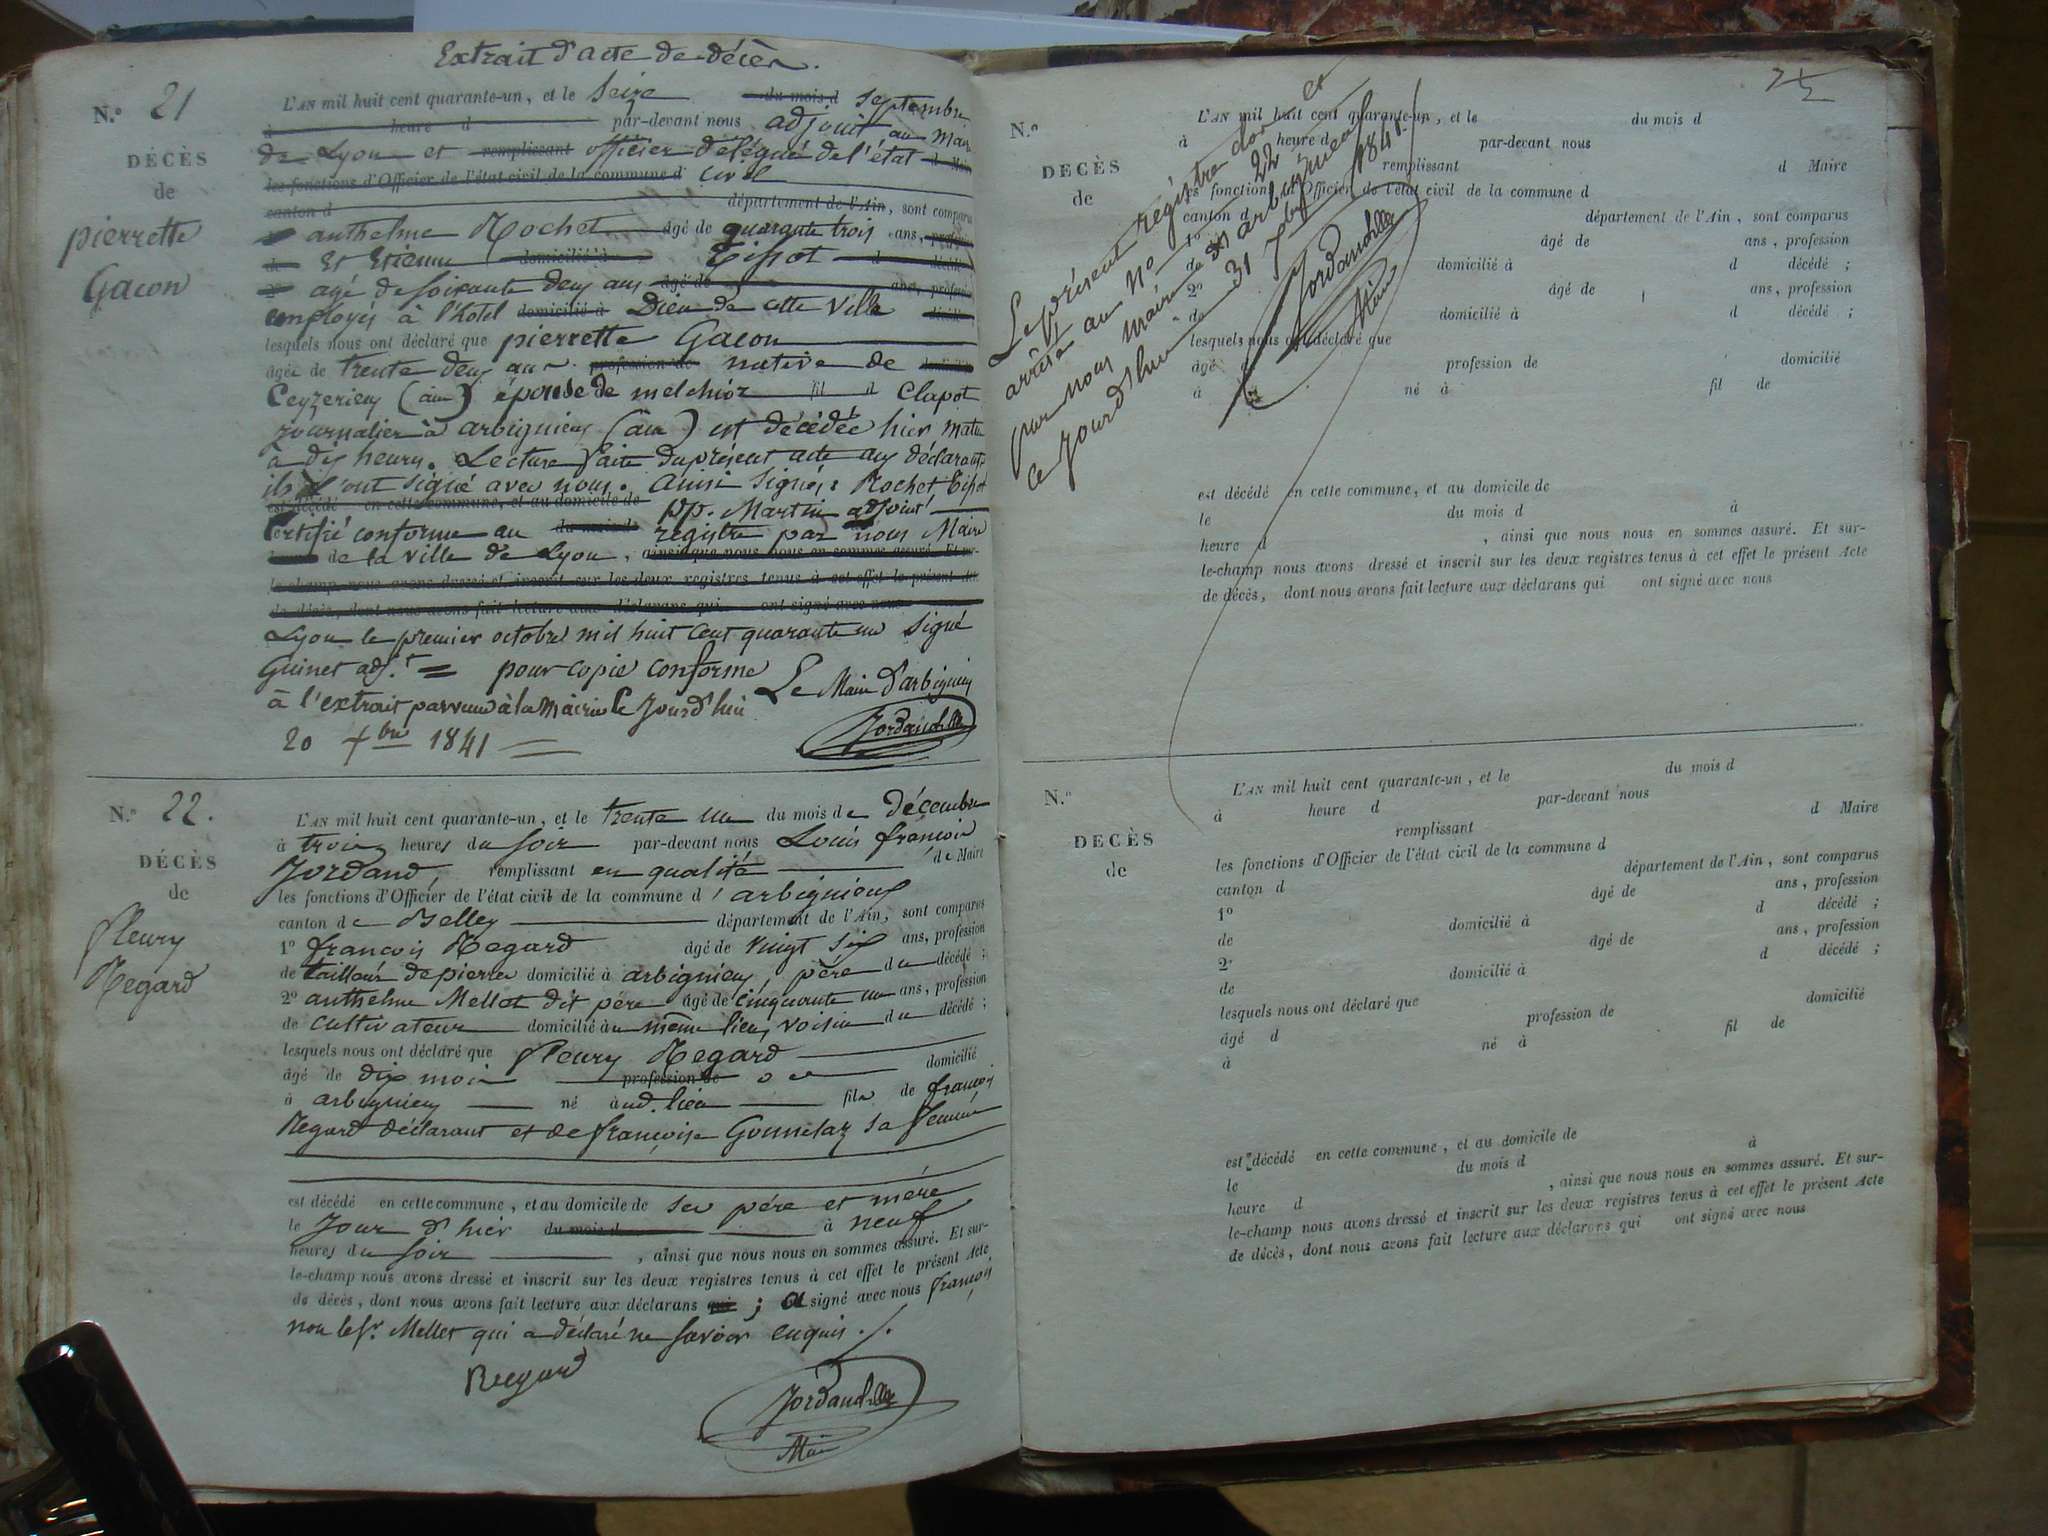 Extrait d'acte de décès.
N.° 21
DÉCÈS
de
pierrette
Gacon
L'AN mil huit cent quarante-un, et le seize du mois d septembre
à heure d par-devant nous adjoint au Maire
de Lyon et remplissant officier délégué de l'état d Maire
les fonctions d'Officier de l'état civil de la commune d civil
canton d département de l'Ain, sont comparus
anthelme Rochet âgé de quarante trois ans, profession
de Et Etienne domicilié à Tissot d décédé
agé de soixante deux ans âgé de ans, profession
employés à l'hotel domicilié à Dieu de cette ville décédé
lesquels nous ont déclaré que pierrette Gacon
âgée de trente deux ans profession de native de domicilié
Ceyzerieu (ain) épouse de melchior fil d Clapot
journalier à arbignieu (ain) est décédée hier matin
à dix heures. Lecture faite du présent acte aux déclarants
ils l'ont signé avec nous. Ainsi signés: Rochet Tissot
est décédé en cette commune, et au domicile de pp. Martin adjoint
Certifié conforme au du mois de registre par nous Maire
de la ville de Lyon, ainsi que nous nous en sommes assuré. Et sur-
le-champ nous avons dressé et inscrit sur les deux registres tenus à cet effet le présent Acte
de décès, dont nous avons fait lecture aux déclarans qui ont signé avec nous
Lyon le premier octobre mil huit cent quarante un signé
Guinet adj.t = pour copie conforme
à l'extrait parvenu à la Mairie ce jourd'hui Le Maire d'arbignieu
20 xbre 1841
N.° 22.
DÉCÈS
de
fleury
Regard
L'AN mil huit cent quarante-un, et le trente un du mois de décembre
à trois heures du soir par-devant nous Louis françois
Jordand, remplissant en qualité de Maire
les fonctions d'Officier de l'état civil de la commune d'arbignieu
canton de Belley département de l'Ain, sont comparus
1° françois Regard âgé de vingt six ans, profession
de tailleur de pierre domicilié à arbignieu, père du décédé;
2° anthelme Mellet dit père âgé de cinquante un ans, profession
de cultivateur domicilié au même lieu, voisin du décédé;
lesquels nous ont déclaré que fleury Regard
âgé de dix mois profession de domicilié
à arbignieu né aud. lieu fils de françois
Regard déclarant et de françoise Gonnelaz sa femme
est décédé en cette commune, et au domicile de ses père et mère
le jour d'hier du mois d à neuf
heures du soir, ainsi que nous nous en sommes assuré. Et sur-
le-champ nous avons dressé et inscrit sur les deux registres tenus à cet effet le présent Acte
de décès, dont nous avons fait lecture aux déclarans qui; a signé avec nous françois
non le Sr. Mellet qui a déclaré ne savoir enquis ./.
Regard
Maire
Le présent régistre clos et
arrêté au N° 22
par nous maire d'arbignieu
ce jourd'hui 31 Xbre 1841.
Maire
N.°
DECÈS
de
L'AN mil huit cent quarante-un, et le du mois d
à heure d par-devant nous
remplissant d Maire
les fonctions d'Officier de l'état civil de la commune d
canton d département de l'Ain, sont comparus
1° âgé de ans, profession
de domicilié à d décédé;
2° âgé de ans, profession
de domicilié à d décédé;
lesquels nous ont déclaré que
âgé d profession de domicilié
à né à fil de
est décédé en cette commune, et au domicile de
le du mois d à
heure d, ainsi que nous nous en sommes assuré. Et sur-
le-champ nous avons dressé et inscrit sur les deux registres tenus à cet effet le présent Acte
de décès, dont nous avons fait lecture aux déclarans qui ont signé avec nous
N.°
DECÈS
de
L'AN mil huit cent quarante-un, et le du mois d
à heure d par-devant nous
remplissant d Maire
les fonctions d'Officier de l'état civil de la commune d
canton d département de l'Ain, sont comparus
1° âgé de ans, profession
de domicilié à d décédé;
2° âgé de ans, profession
de domicilié à d décédé;
lesquels nous ont déclaré que
âgé d profession de domicilié
à né à fil de
est décédé en cette commune, et au domicile de
le du mois d à
heure d, ainsi que nous nous en sommes assuré. Et sur-
le-champ nous avons dressé et inscrit sur les deux registres tenus à cet effet le présent Acte
de décès, dont nous avons fait lecture aux déclarans qui ont signé avec nous